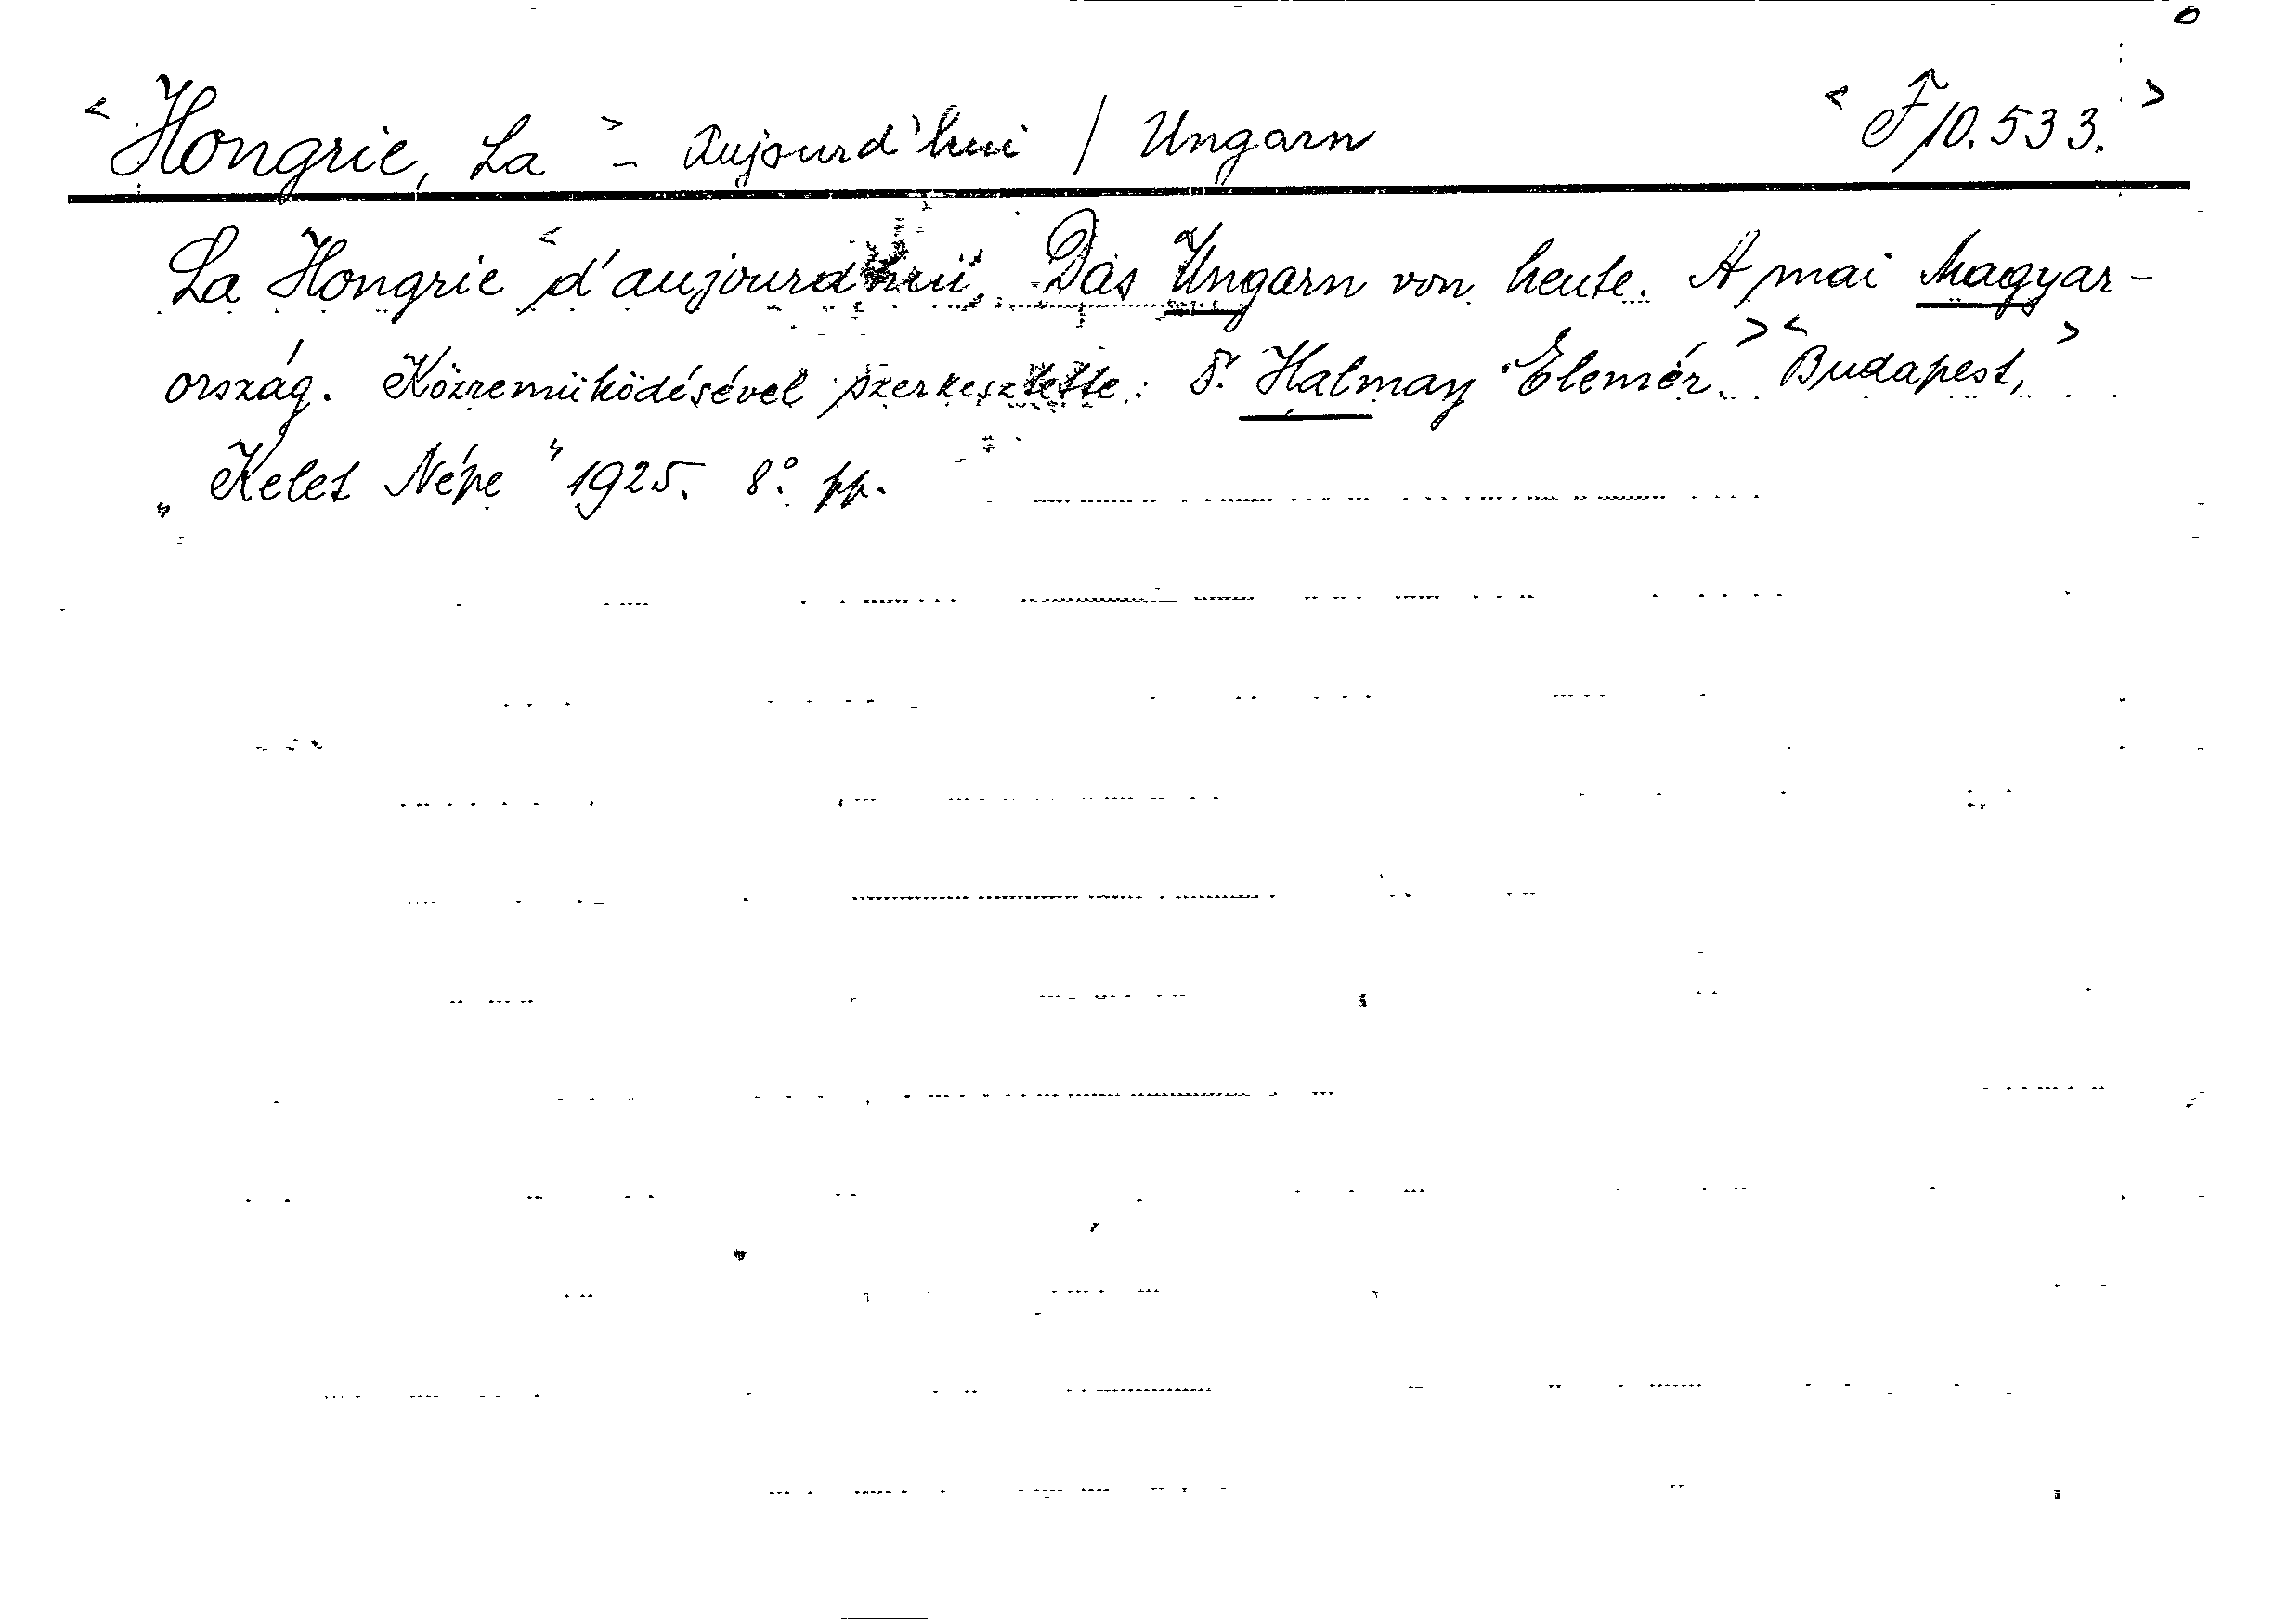 < Hongrie, La > - Aujourd'hui / Ungarn < F 10.533. >
La Hongrie < d'aujourd'hui. Das Ungarn von heute. A mai Magyar-
ország. Közreműködésével szerkesztette: P. Halmay Elemér. > < Budapest, >
„Kelet Népe" 1925. 8° pp.